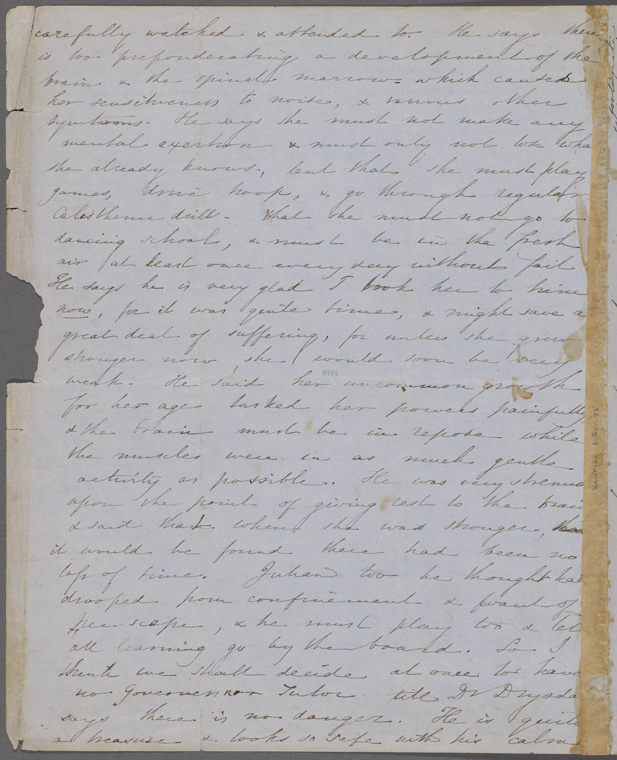 carefully watched & attended to. He says there
is too preponderating a development of the
brain & the spinal marrow which caused
her sensitiveness to noise, & various other
symptoms. He says she must not make any
mental exertion & must only not lose wha
she already knows, but that she must play
games, drive hoop, & go through regular
Calesthenic drill. That she must not go to
dancing school, & must be in the fresh
air at least once every day without fail
He says he is very glad I took her to him
now, for it was quite time, & might save a
great deal of suffering, for unless she grew
stronger now she would soon be very
weak. He said her uncommon growth
for her age tasked her powers painfully
& the brain must be in repose while
the muscles were in as much gentle
activity as possible. He was very strenuo
upon the point of giving rest to the brain
& said that when she was stronger,
it would be found there had been no
loss of time. Julian too he thought had
drooped from confinement & want of
, & he must play too & let
all learning go by the board. So I
think we shall decide at once to have
no Governess nor Tutor till Dr Drysda
says there is no danger. He is quite
a treasure & looks so safe with his calm
NYPL